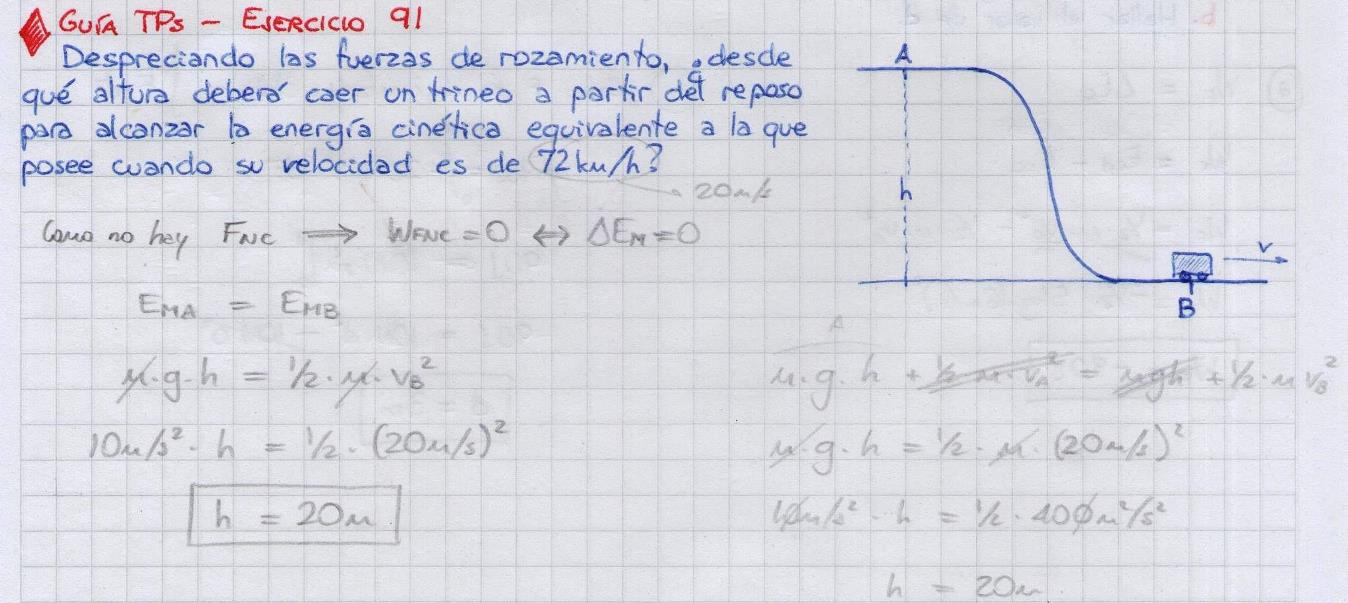 GUÍA TPs - EJERCICIO 91
Despreciando las fuerzas de rozamiento, ¿desde
qué altura deberá caer un trineo a partir del reposo
para alcanzar la energía cinética equivalente a la que
posee cuando su velocidad es de 72km/h?
20m/s
Como no hay FNC ⟹ WFNC = 0 ↔ ΔEM = 0
EMA = EMB
m·g·h = 1/2·m·vB²
10m/s² · h = 1/2·(20m/s)²
h = 20m
A
h
v
B
A
m·g·h + 1/2·m·vA² = mgh + 1/2·m vB²
m·g·h = 1/2·m·(20m/s)²
10m/s² · h = 1/2·400m²/s²
h = 20m